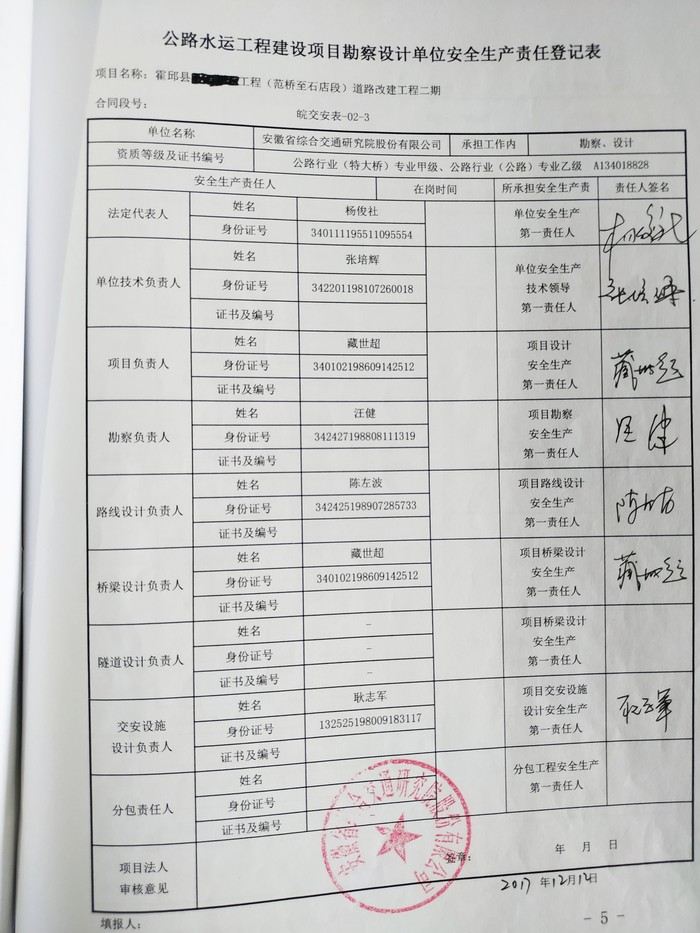 公路水运工程建设项目勘察设计单位安全生产责任登记表
项目名称：霍邱县 工程（范桥至石店段）道路改建工程二期
合同段号：
皖交安表-02-3
单位名称 安徽省综合交通研究院股份有限公司 承担工作内 勘察、设计
资质等级及证书编号 公路行业（特大桥）专业甲级、公路行业（公路）专业乙级 A134018828
安全生产责任人 在岗时间 所承担安全生产责 责任人签名
法定代表人 姓名 杨俊社 单位安全生产
身份证号 340111195511095554 第一责任人
单位技术负责人 姓名 张培辉 单位安全生产
身份证号 342201198107260018 技术领导
证书及编号 第一责任人
项目负责人 姓名 藏世超 项目设计
身份证号 340102198609142512 安全生产
证书及编号 第一责任人
勘察负责人 姓名 汪健 项目勘察
身份证号 342427198808111319 安全生产
证书及编号 第一责任人
路线设计负责人 姓名 陈左波 项目路线设计
身份证号 342425198907285733 安全生产
证书及编号 第一责任人
桥梁设计负责人 姓名 藏世超 项目桥梁设计
身份证号 340102198609142512 安全生产
证书及编号 第一责任人
隧道设计负责人 姓名 - 项目桥梁设计
身份证号 - 安全生产
证书及编号 - 第一责任人
交安设施 姓名 耿志军 项目交安设施
设计负责人 身份证号 132525198009183117 设计安全生产
证书及编号 第一责任人
分包责任人 姓名 分包工程安全生产
身份证号 第一责任人
证书及编号
安徽省综合交通研究院股份有限公司
项目法人
审核意见
签章： 年 月 日
2017 年12月12日
填报人：
- 5 -